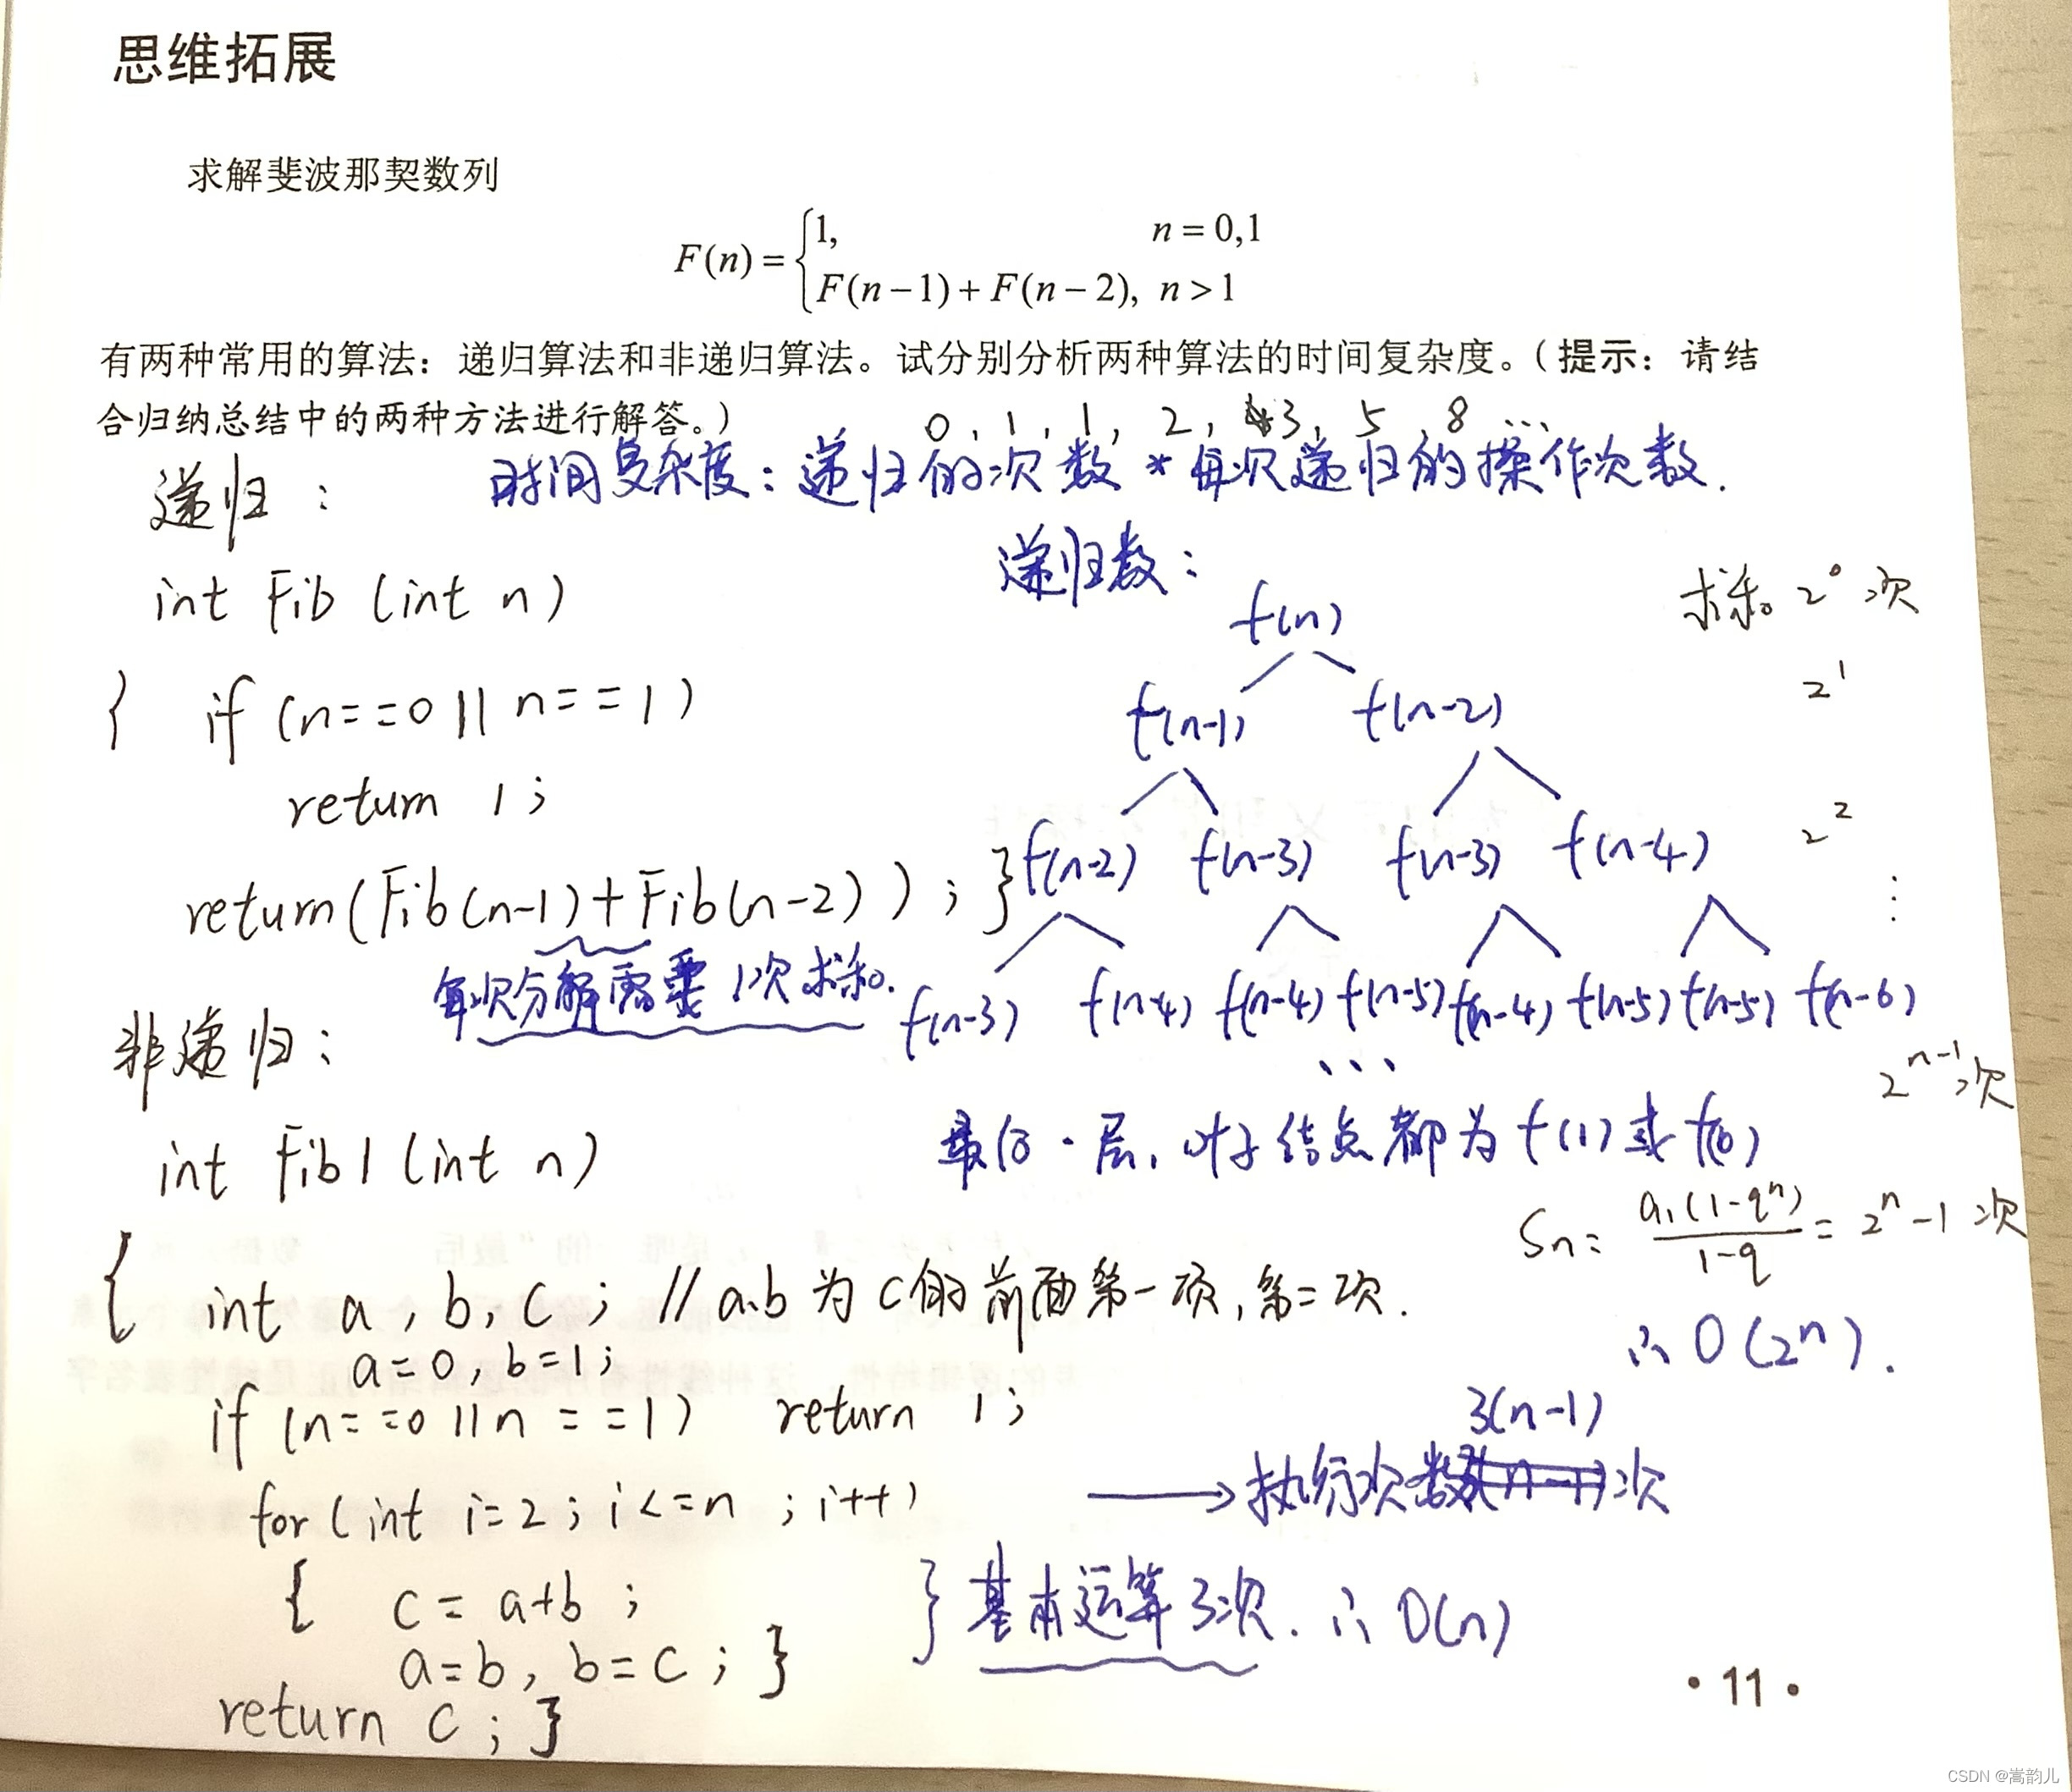 思维拓展
求解斐波那契数列
F(n) = { 1, n = 0,1
F(n−1) + F(n−2), n > 1
有两种常用的算法：递归算法和非递归算法。试分别分析两种算法的时间复杂度。（提示：请结
合归纳总结中的两种方法进行解答。）
0, 1, 1, 2, 3, 5, 8 …
递归：
时间复杂度：递归的次数 * 每次递归的操作次数.
递归数：
int Fib (int n)
f(n)
求和 2⁰ 次
{ if (n==0 || n==1)
f(n-1) f(n-2)
2¹
return 1;
f(n-2) f(n-3) f(n-3) f(n-4)
2²
⋮
return(Fib(n-1)+Fib(n-2)); }
每次分解需要1次求和.
f(n-3) f(n-4) f(n-4) f(n-5) f(n-4) f(n-5) f(n-5) f(n-6)
…
2ⁿ⁻¹次
非递归：
最后一层, 叶子结点都为 f(1) 或 f(0)
int Fib1 (int n)
Sn = a₁(1-qⁿ)/(1-q) = 2ⁿ-1 次
{ int a, b, c; // a.b 为 c 的前面第一项, 第二次.
∴ O(2ⁿ).
a=0, b=1;
if (n==0 || n==1) return 1;
3(n-1)
for (int i=2; i<=n; i++)
→ 执行次数 次
{ c = a+b;
a=b, b=c; }
} 基本运算3次. ∴ O(n)
return c; }
·11·
CSDN @嵩韵儿